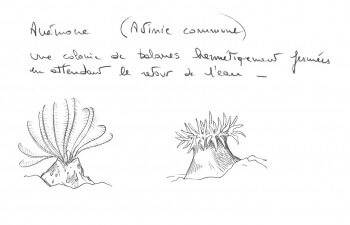 Anémone (Actinie commune)
une colonie de balanes hermétiquement fermées
en attendant le retour de l'eau -